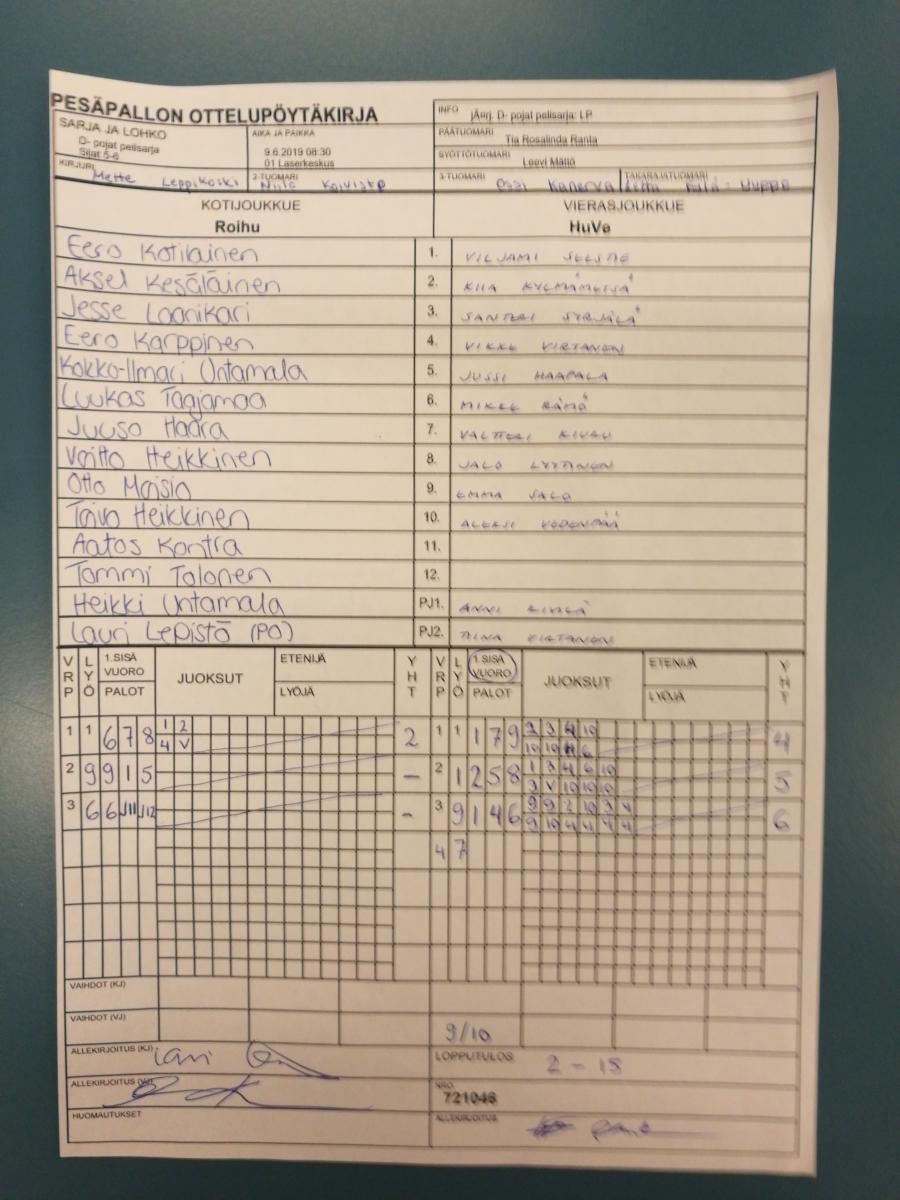 PESÄPALLON OTTELUPÖYTÄKIRJA
INFO jÄnj. D- pojat pelisarja: LP
SARJA JA LOHKO
D- pojat pelisarja
Sijat 5-6
AIKA JA PAIKKA
9.6.2019 08:30
01 Laserkeskus
PÄÄTUOMARI Tia Rosalinda Ranta
SYÖTTÖTUOMARI Leevi Mättö
KIRJURI Mette Leppikoski
2-TUOMARI Niilo Koivisto
3-TUOMARI Ossi Kanerva
TAKARAJATUOMARI
KOTIJOUKKUE VIERASJOUKKUE
Roihu HuVe
Eero Kotilainen 1. VILJAMI
Aksel Kesäläinen 2. KIIA KYLMÄMETSÄ
Jesse Laanikari 3. SANTERI SYRJÄLÄ
Eero Karppinen 4. VIKKE VIRTANEN
Kokko-Ilmari Untamala 5. JUSSI HAAPALA
Luukas Taajamaa 6. MIKKE RÄMÖ
Juuso Haara 7. VALTTERI
Voitto Heikkinen 8. JALO LYYTINEN
Otto Maisia 9. EMMA SALO
Toivo Heikkinen 10. ALEKSI VEDENPÄÄ
Aatos Kontra 11.
Tommi Tolonen 12.
Heikki Untamala PJ1. ANNI
Lauri Lepistö (PO) PJ2. TIINA VIRTANEN
VRP LYÖ 1.SISÄ VUORO PALOT JUOKSUT ETENIJÄ LYÖJÄ YHT VRP LYÖ 1.SISÄ VUORO PALOT JUOKSUT ETENIJÄ LYÖJÄ YHT
1 1 6 7 8 1 2 2 1 1 1 7 9 2 3 4 10 4
4 V 10 10 6
2 9 9 1 5 - 2 1 2 5 8 1 3 4 6 10 5
3 V 10 10 10
3 6 6 J11 J12 - 3 9 1 4 6 9 9 2 10 3 4 6
9 10 4 4 4 4
4 7
VAIHDOT (KJ)
VAIHDOT (VJ) 9/10
ALLEKIRJOITUS (KJ)
LOPPUTULOS 2 - 15
ALLEKIRJOITUS (VJ)
NRO. 721046
HUOMAUTUKSET
ALLEKIRJOITUS